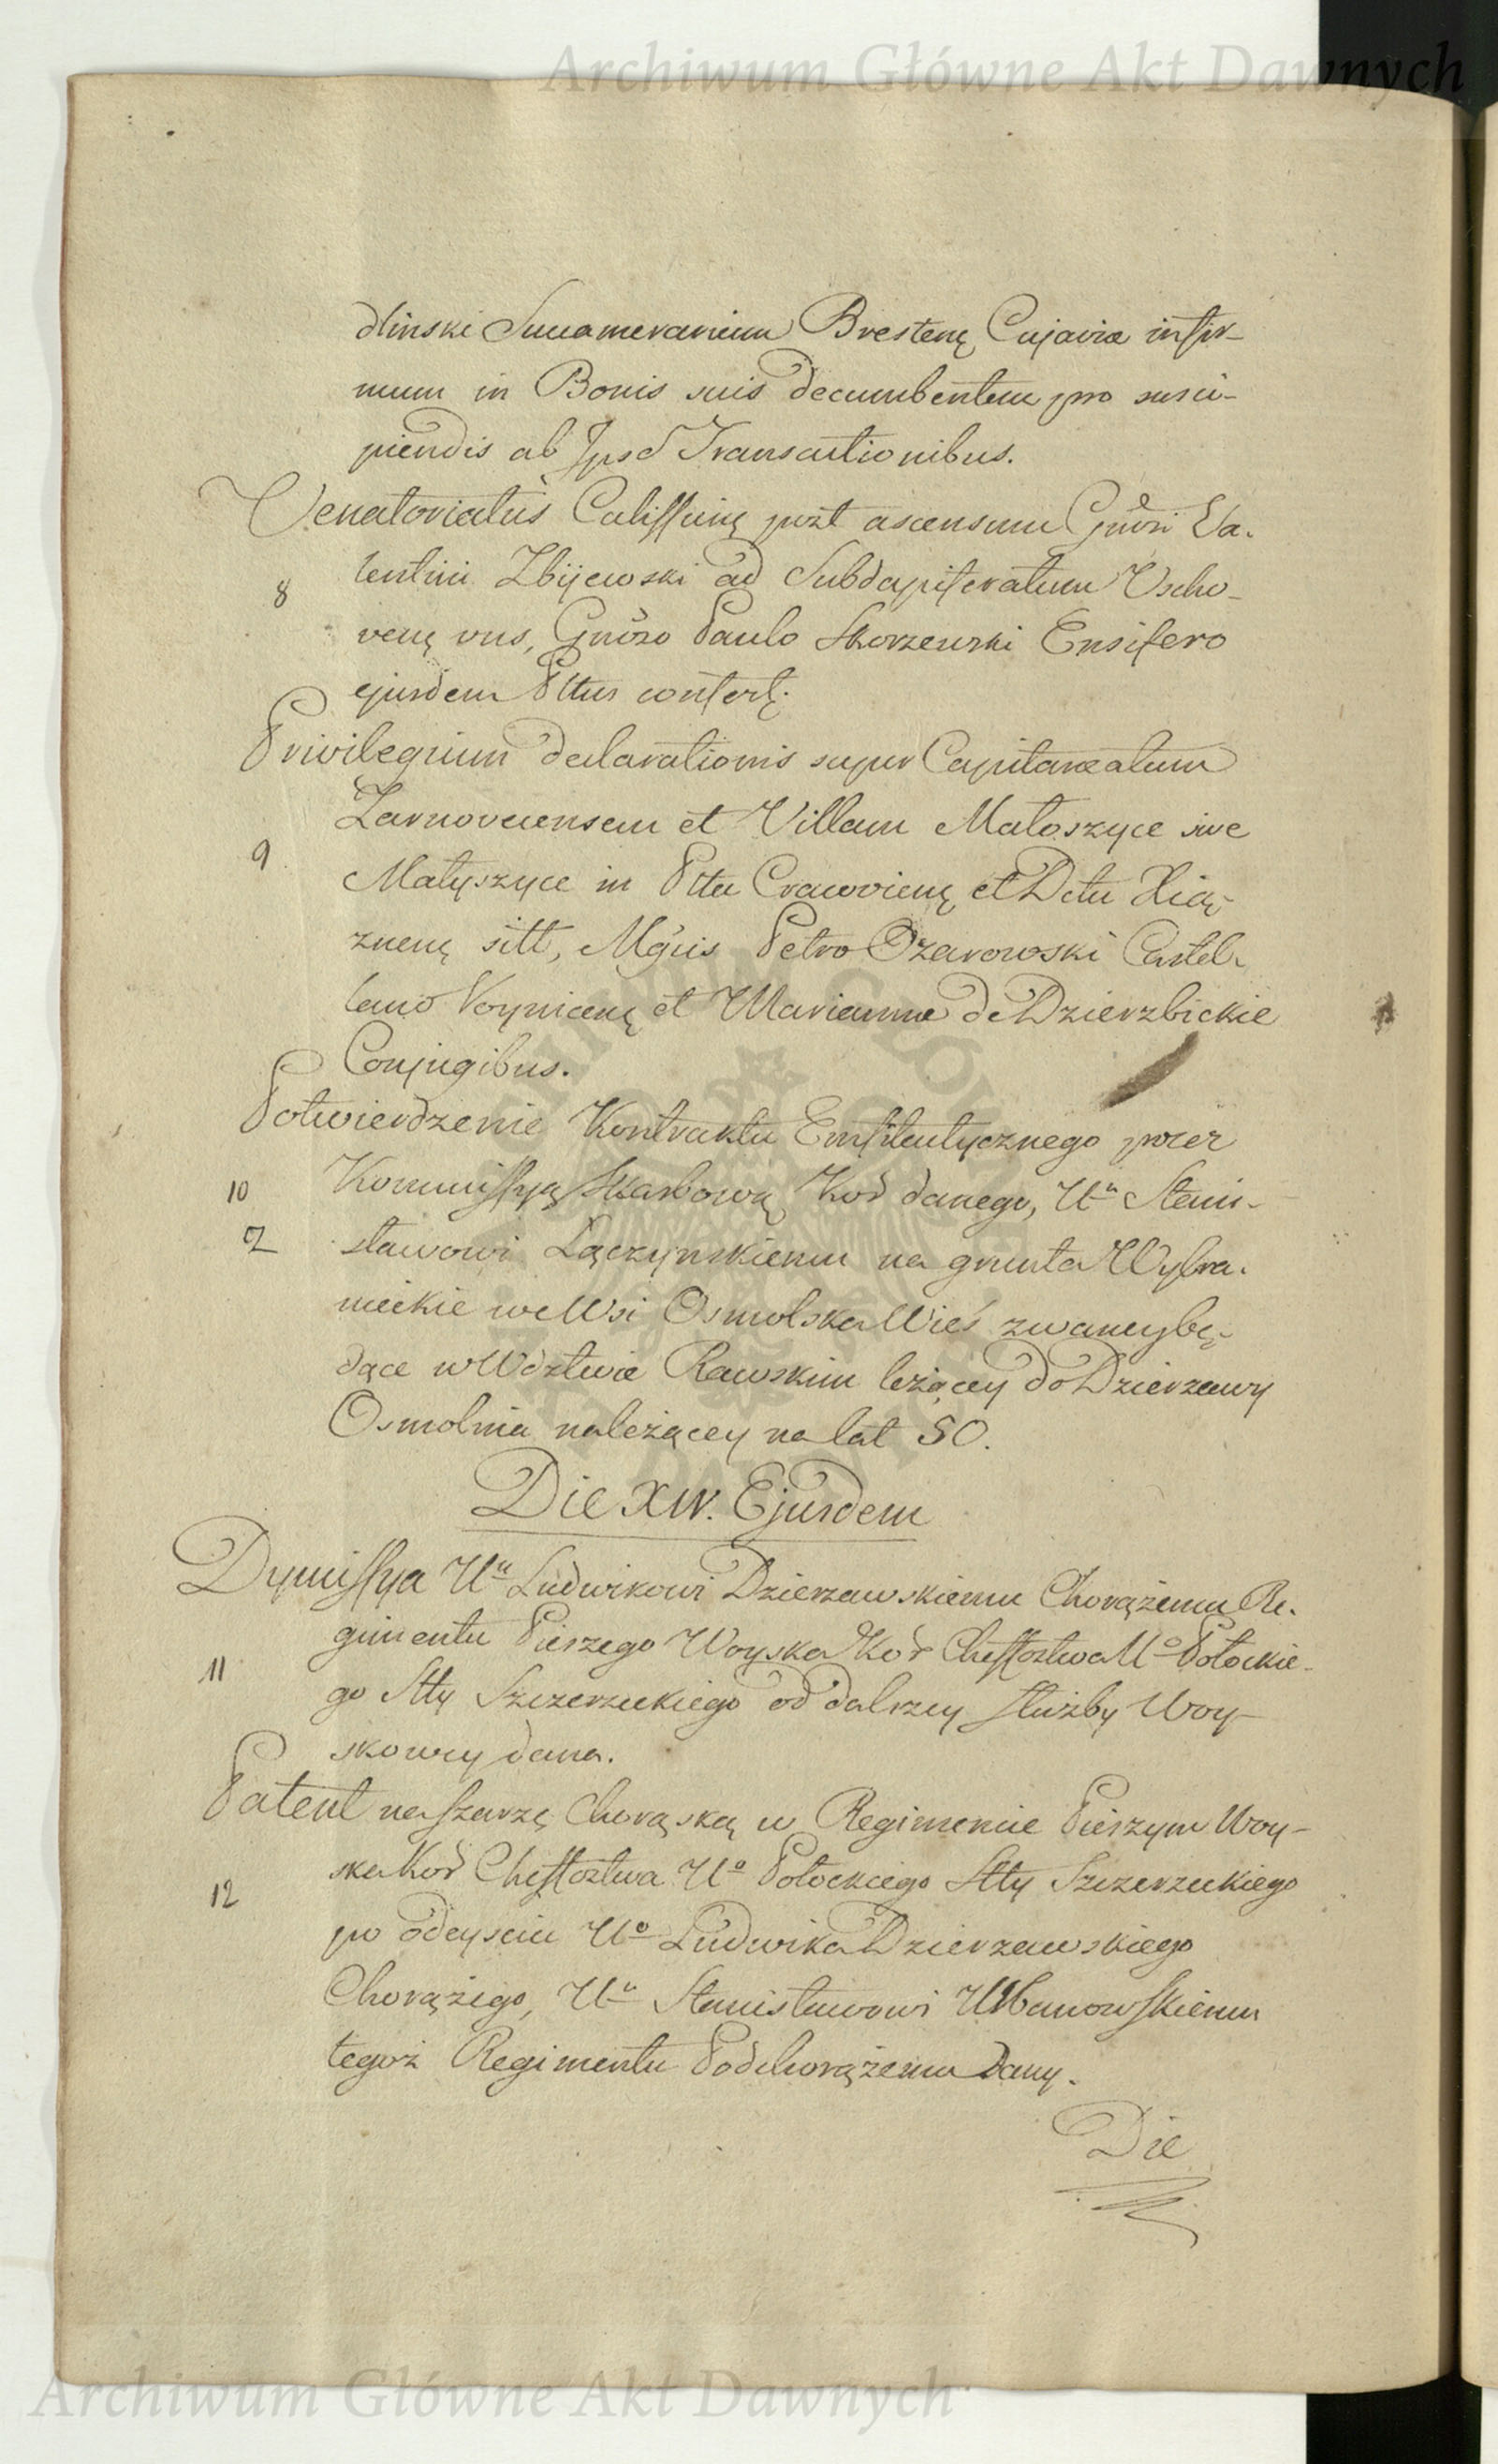 Archiwum Główne Akt Dawnych
dlinski Succamerarium Brestenę Cujaviæ infir-
mum in Bonis suis decumbentem pro susci-
piendis ab Ipso Transactionibus.
Venatoriatus Calissienę post ascensum Gnõsi Va-
lentini Zbijewski ad Subdapiferatum Vscho-
8
venę vns, Gnõso Paulo Skorzewski Ensifero
ejusdem Pttus confertę.
Privilegium declarationis super Capitaneatum
Zarnoveciensem et Villam Matoszyce sive
9
Matyszyce in Pttu Cracovienę et Dctu Xią-
znenę sitt, Mgcis Petro Ożarowski Castel-
lano Voynicenę et Marianna de Dzierzbickie
Conjugibus.
Potwierdzenie Kontraktu Emfiteutycznego przez
10 Kommissyą Skarbową Kor danego, Uu Stani-
2 sławowi Łączynskiemu na grunta Wybra-
nieckie we Wsi Osmolska Wieś zwaney bę-
dące w Wdztwie Rawskim leżącey do Dzierzawy
Osmolnia należącey na lat 50.
Die XIV. Ejusdem
Dymissya Uu Ludwikowi Dzierzawskiemu Chorążemu Re-
gimentu Pieszego Woyska Kor Chefftoztwa Uo Potockie-
11
go Stty Szczerzeckiego od dalszey służby Woy-
skowey dana.
Patent na szarżę Chorąską w Regimencie Pieszym Woy-
ska Kor Chefftoztwa Uo Potockiego Stty Szczerzeckiego
12
po odeysciu Uo Ludwika Dzierzawskiego
Chorążego, Uu Stanisławowi Urbanowskiemu
tegoż Regimentu Podchorążemu Dany.
Die
Archiwum Główne Akt Dawnych